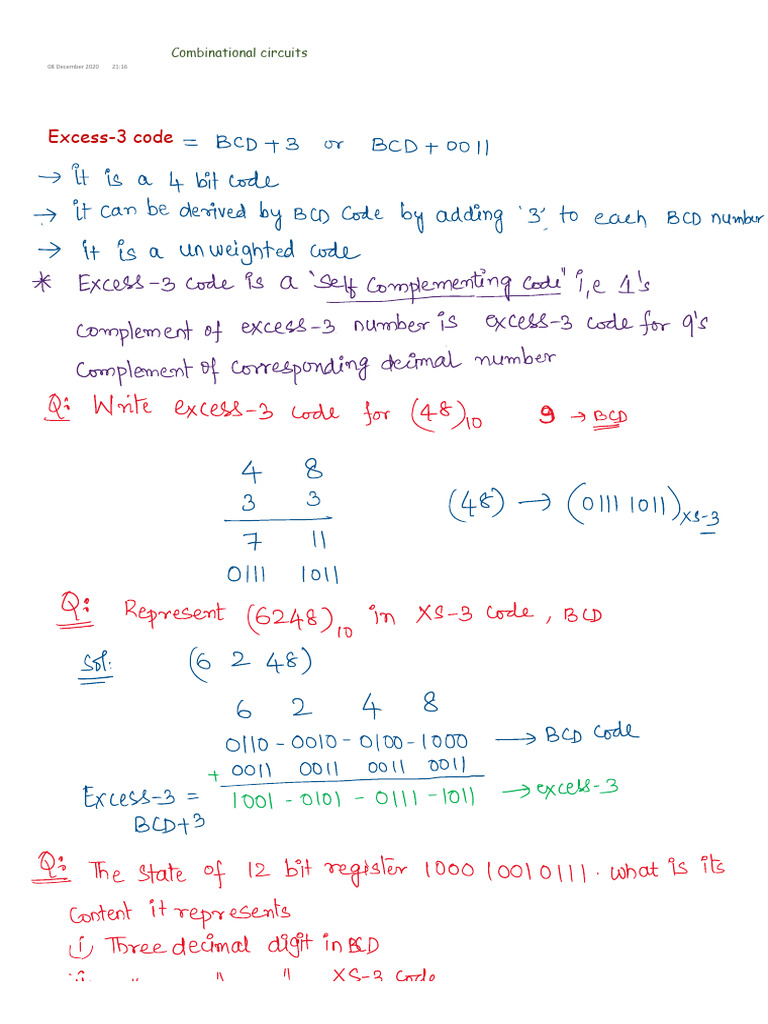 Combinational circuits
08 December 2020 21:16
Excess-3 code = BCD + 3 or BCD + 0011
→ It is a 4 bit code
→ it can be derived by BCD code by adding '3' to each BCD number
→ it is a unweighted code
* Excess-3 code is a 'self complementing code" i,e 1's
complement of excess-3 number is excess-3 code for 9's
complement of corresponding decimal number
Q: Write excess-3 code for (48)10 9 → BCD
4 8
3 3
(48) → (0111 1011)XS-3
7 11
0111 1011
Q: Represent (6248)10 in XS-3 code, BCD
Sol: (6 2 48)
6 2 4 8
0110 - 0010 - 0100 - 1000 → BCD code
+ 0011 0011 0011 0011
Excess-3 = 1001 - 0101 - 0111 - 1011 → excess-3
BCD+3
Q: The state of 12 bit register 1000 1001 0111. what is its
content it represents
(i) Three decimal digit in BCD
" " " XS-3 code